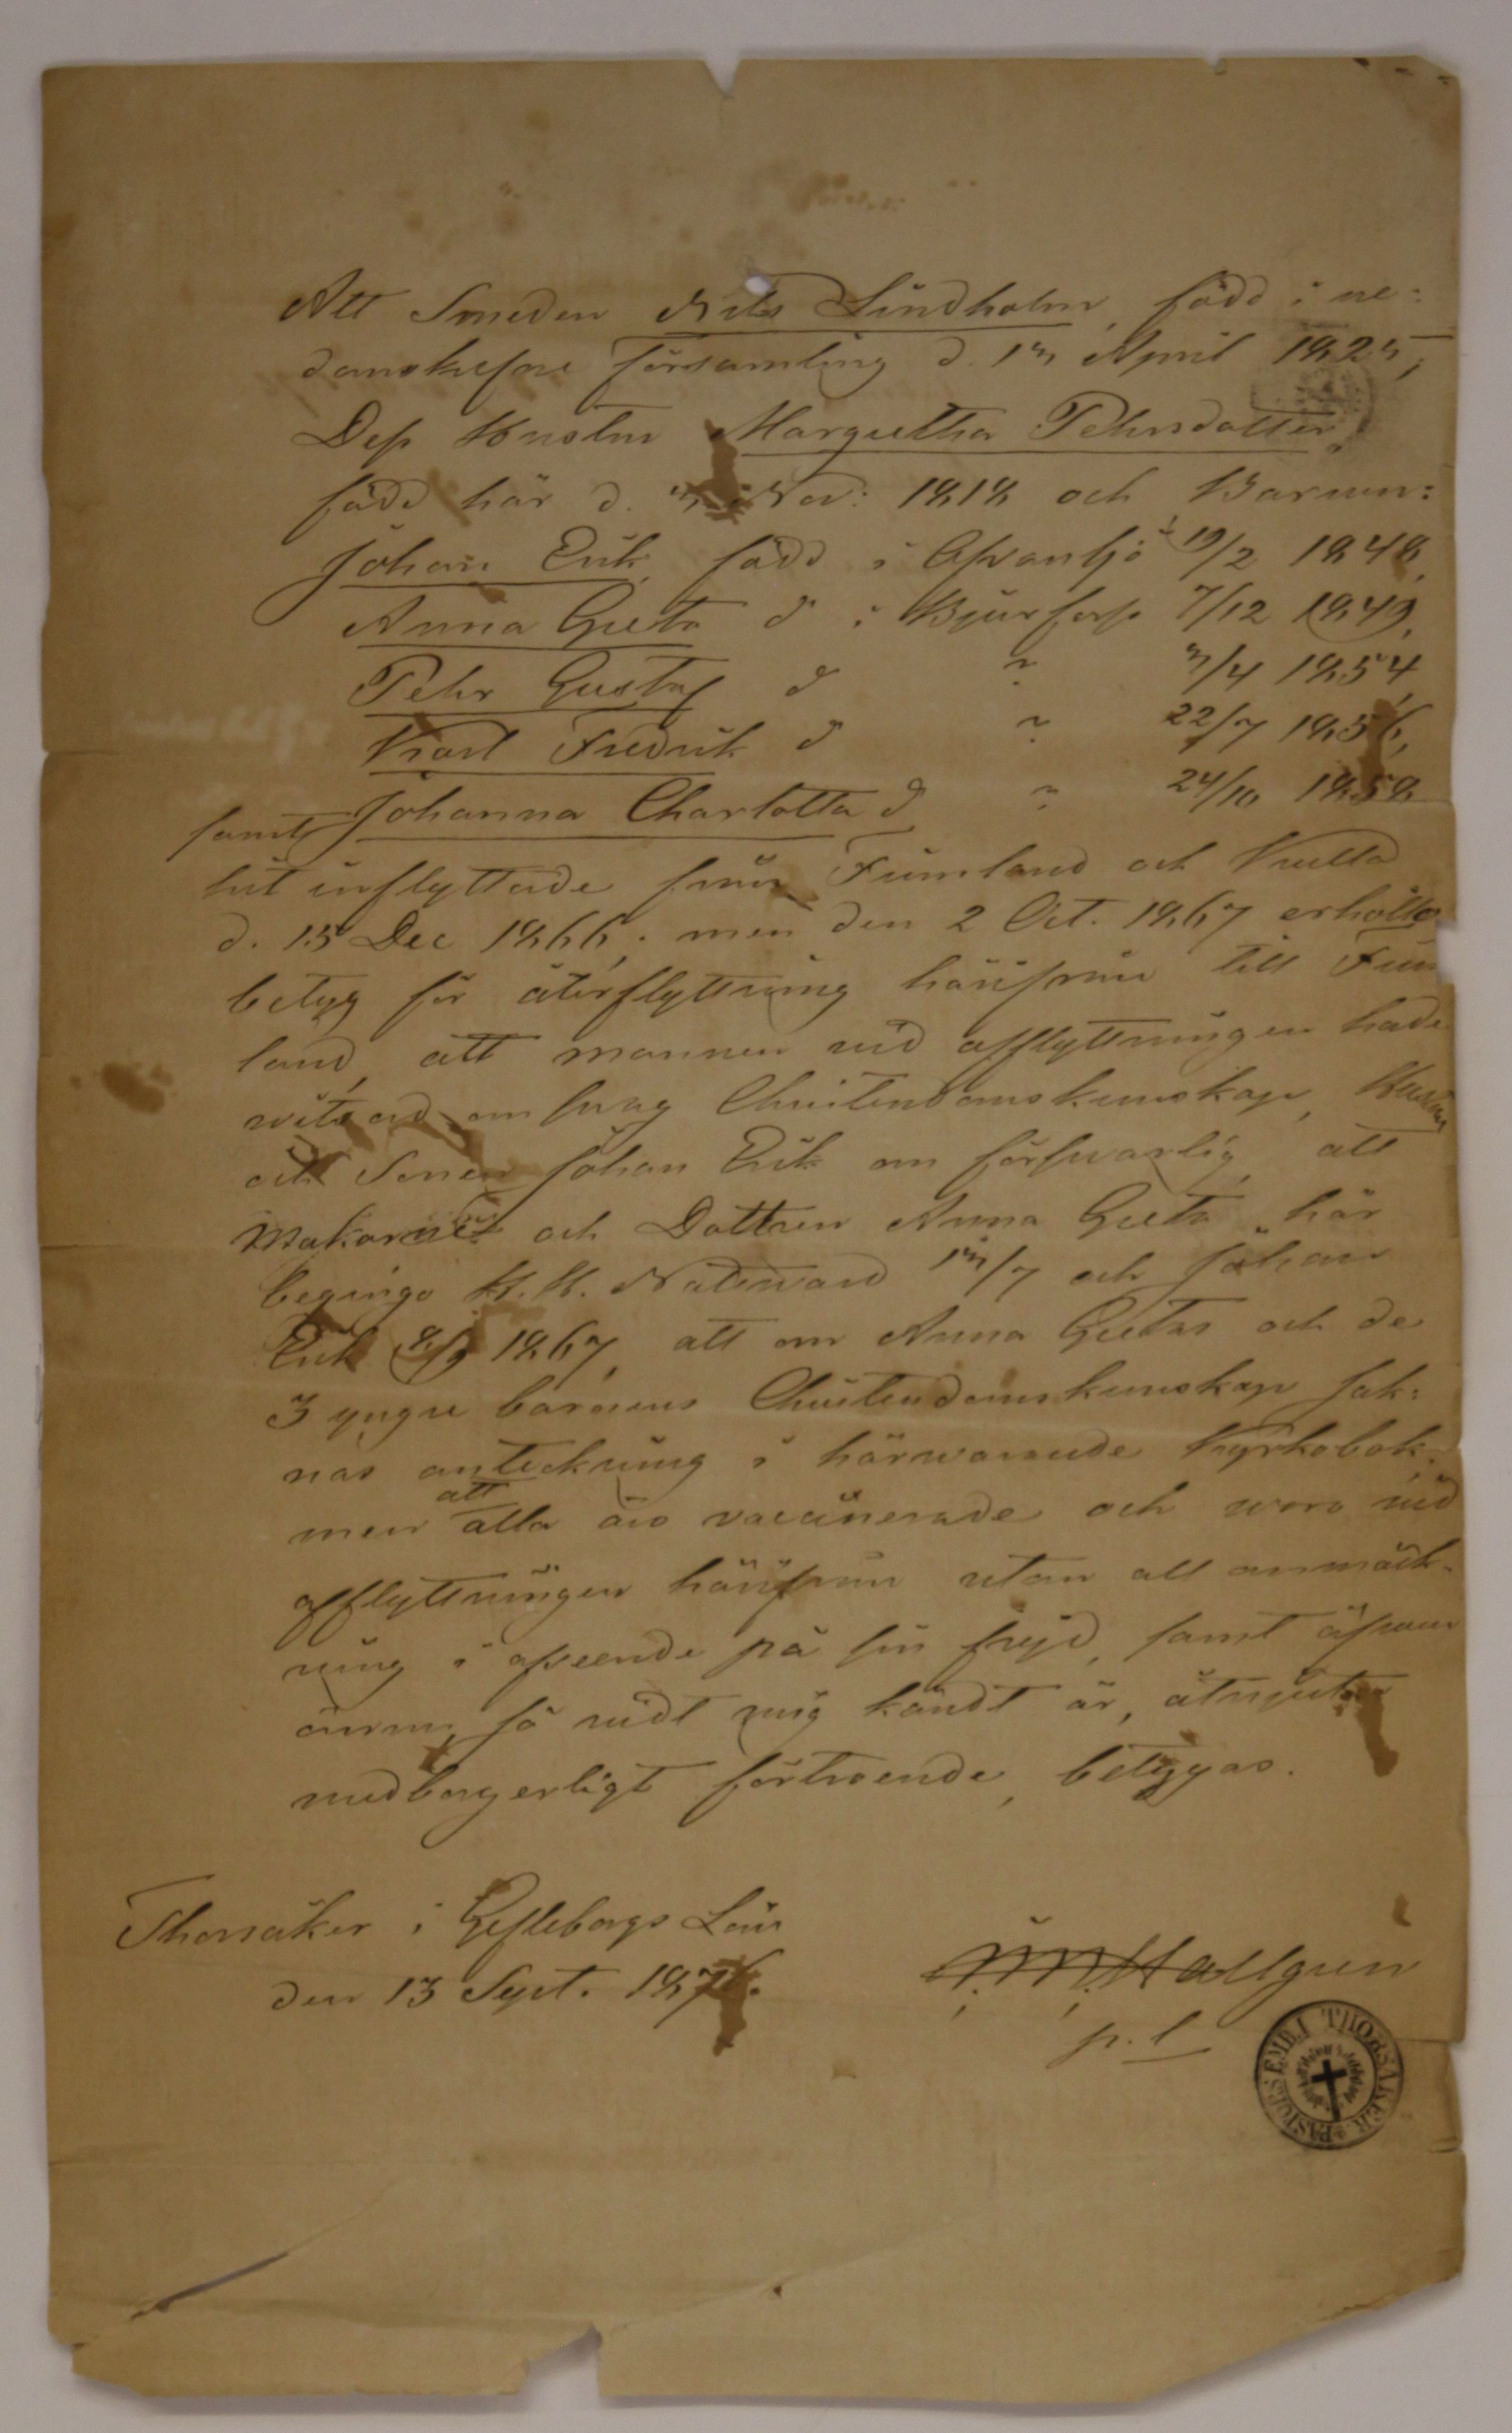 Att Smeden Nils Lindholm, född i ne-
danskrefne församling d. 13 April 1825,
Dess Hustru Margretha Pehrsdotter,
född här d. Nov: 1818 och Barnen:
Johan Erik, född i 19/2 1848,
Anna Greta d:o i Bjurfors 7/12 1849,
Pehr Gustaf d:o " 3/4 1854,
Karl Fredrik d:o " 22/7 1856,
samt Johanna Charlotta d:o " 24/10 1858
hit inflyttade från Finnland och Kulla
d. 15 Dec 1866, men den 2 Oct. 1867 erhöllo
betyg för återflyttning härifrån till Finn
land, att mannen vid afflyttningen hade
witsord om swag Christendomskunskap, Hustrun
och Sonen Johan Erik om förswarlig, att
Makarne och Dottren Anna Greta här
begingo H. H. Nattward 13/7 och Johan
Erik 8/9 1867, att om Anna Gretas och de
3 yngre barnens Christendomskunskap sak-
nas anteckning i härwarande Kyrkobok,
men att alla äro vaccinerade och woro vid
afflyttningen härifrån utan all anmärk-
ning i afseende på sin frejd, samt äfwen
ännu, så vidt mig kändt är, åtnjuta
medborgerligt förtroende, betygas.
Thorsåker i Gefleborgs Län
den 13 Sept. 1876.
Hallgren
p. l
PASTORSEMB. I THORSÅKER